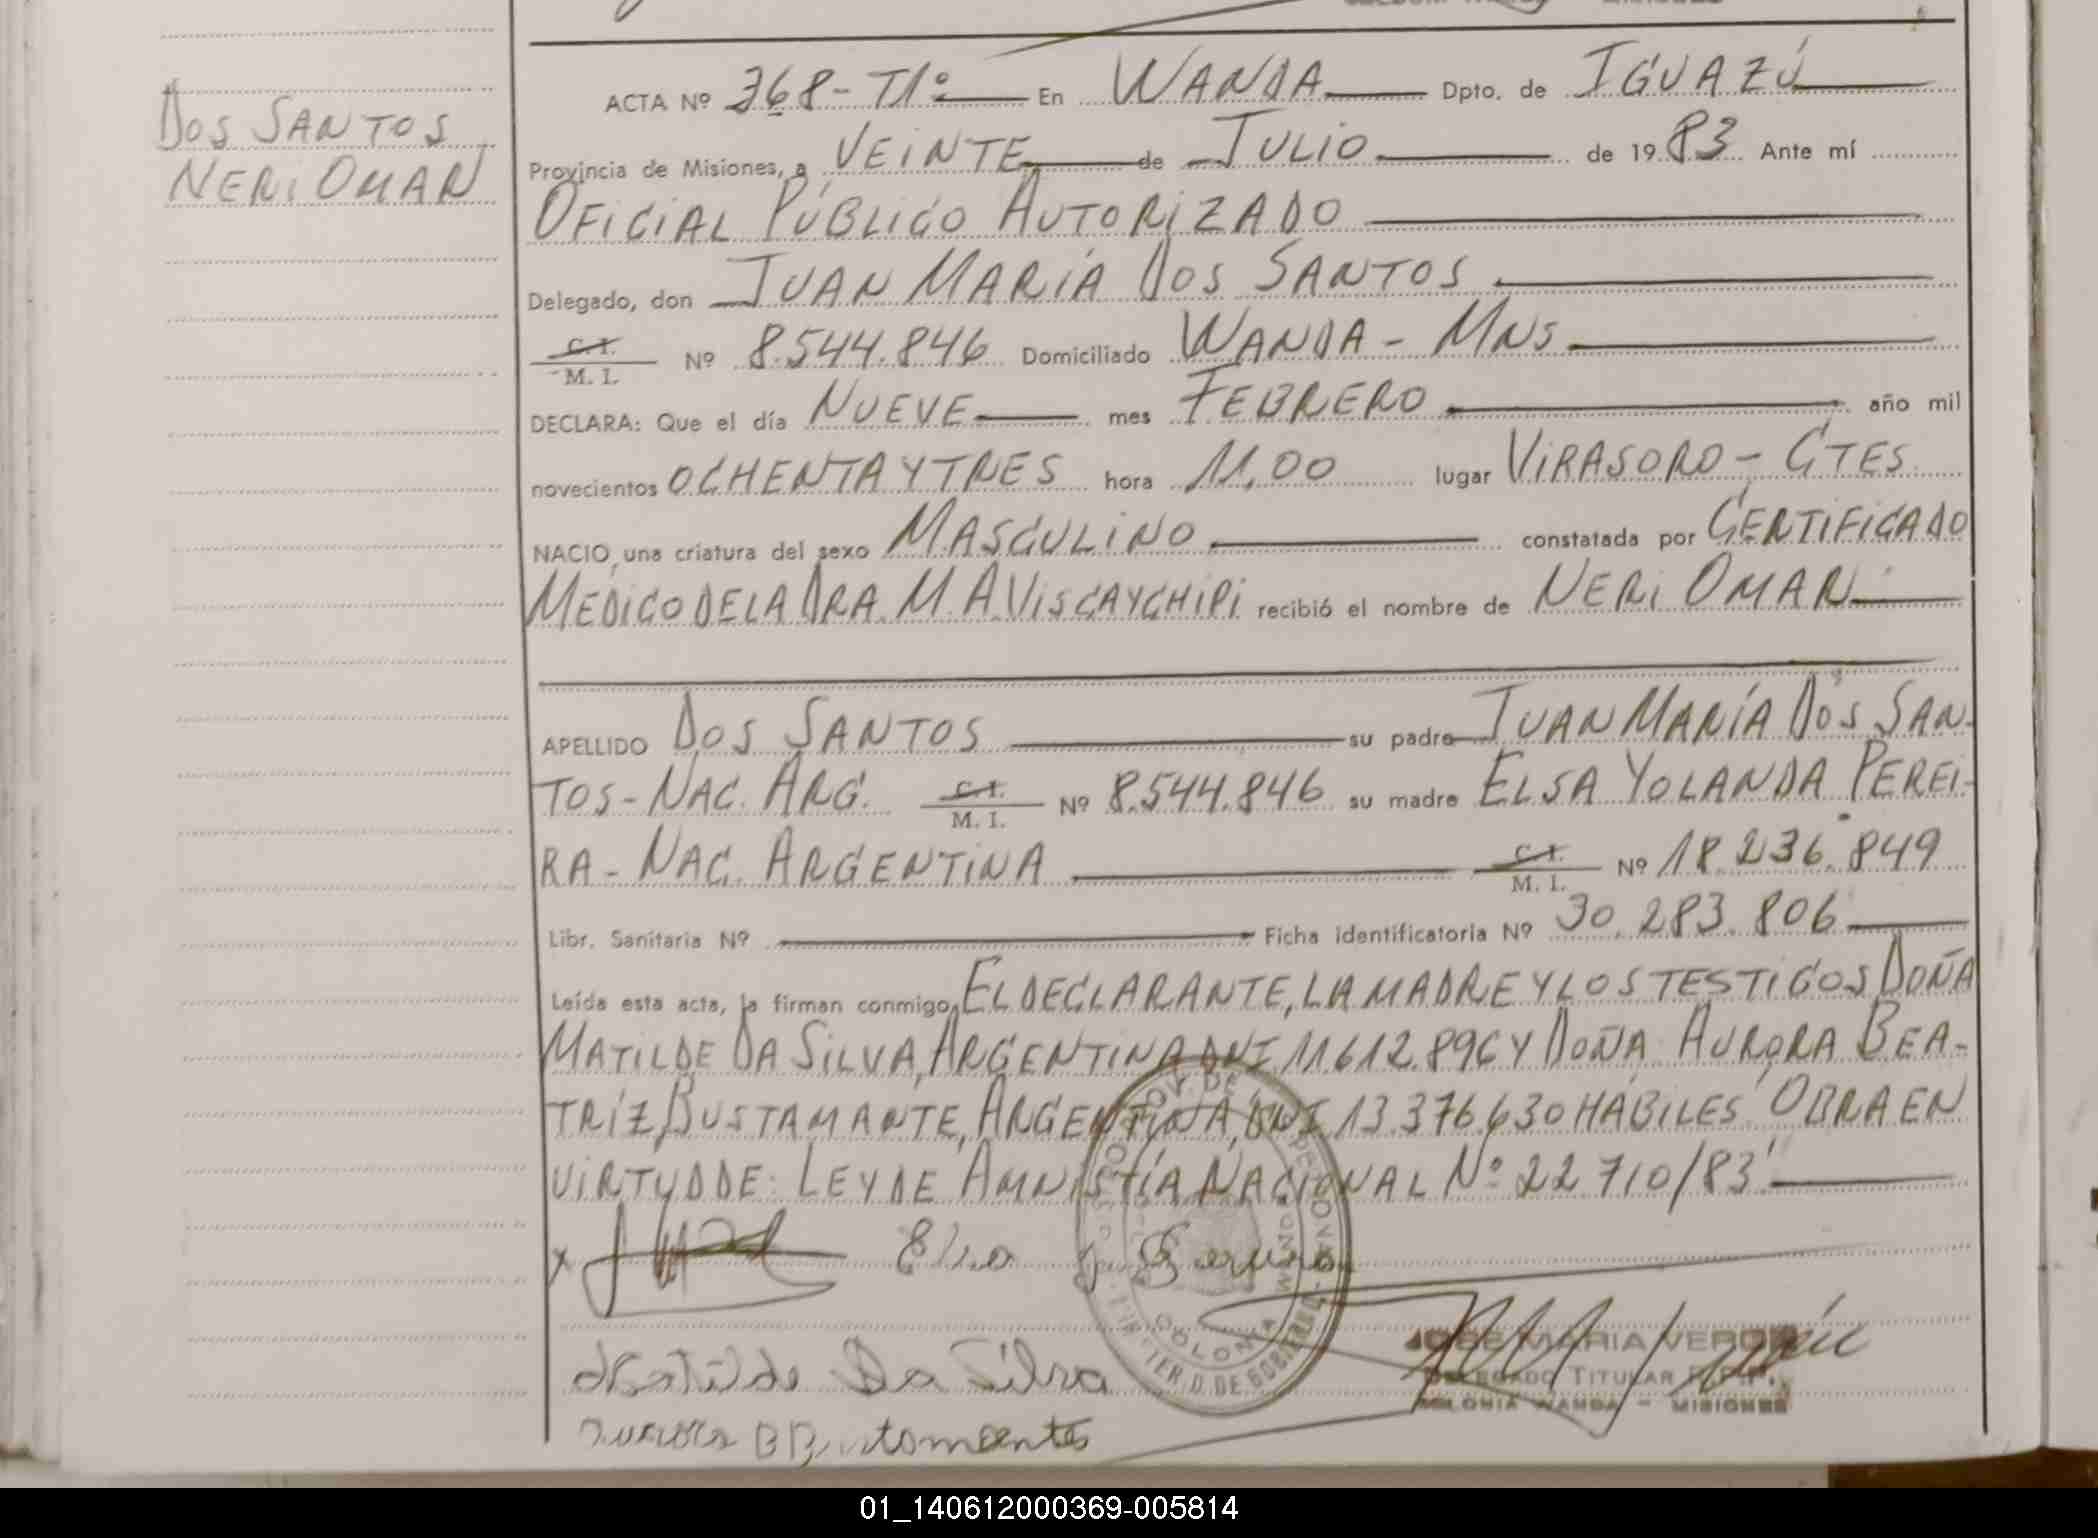 DOS SANTOS
NERI OMAR
ACTA Nº 368-T1º En WANDA Dpto. de IGUAZÚ
Provincia de Misiones, a VEINTE de JULIO de 1983 Ante mí
OFICIAL PÚBLICO AUTORIZADO
Delegado, don JUAN MARÍA DOS SANTOS
C.I.
M. I. Nº 8.544.846 Domiciliado WANDA - MNS
DECLARA: Que el día NUEVE mes FEBRERO año mil
novecientos OCHENTA Y TRES hora 11,00 lugar VIRASORO - CTES
NACIO, una criatura del sexo MASCULINO constatada por CERTIFICADO
MEDICO DE LA DRA. M.A. VISCAYCHIPI recibió el nombre de NERI OMAR
APELLIDO DOS SANTOS su padre JUAN MARÍA DOS SAN-
TOS - NAC. ARG. C.I. M. I. Nº 8.544.846 su madre ELSA YOLANDA PEREI-
RA - NAC. ARGENTINA C.I. M. I. Nº 18.236.849
Libr. Sanitaria Nº Ficha identificatoria Nº 30.283.806
Leída esta acta, la firman conmigo, EL DECLARANTE, LA MADRE Y LOS TESTIGOS DOÑA
MATILDE DA SILVA, ARGENTINA, DNI 11.612.896 Y DOÑA AURORA BEA-
TRÍZ BUSTAMANTE, ARGENTINA, DNI 13.376.630 HÁBILES "OBRA EN
VIRTUD DE: LEY DE AMNISTÍA NACIONAL Nº 22.710/83"
Elsa
Matilde Da Silva
JOSE MARIA
DELEGADO TITULAR
COLONIA WANDA - MISIONES
Aurora B Bustamante
COLONIA
01_140612000369-005814